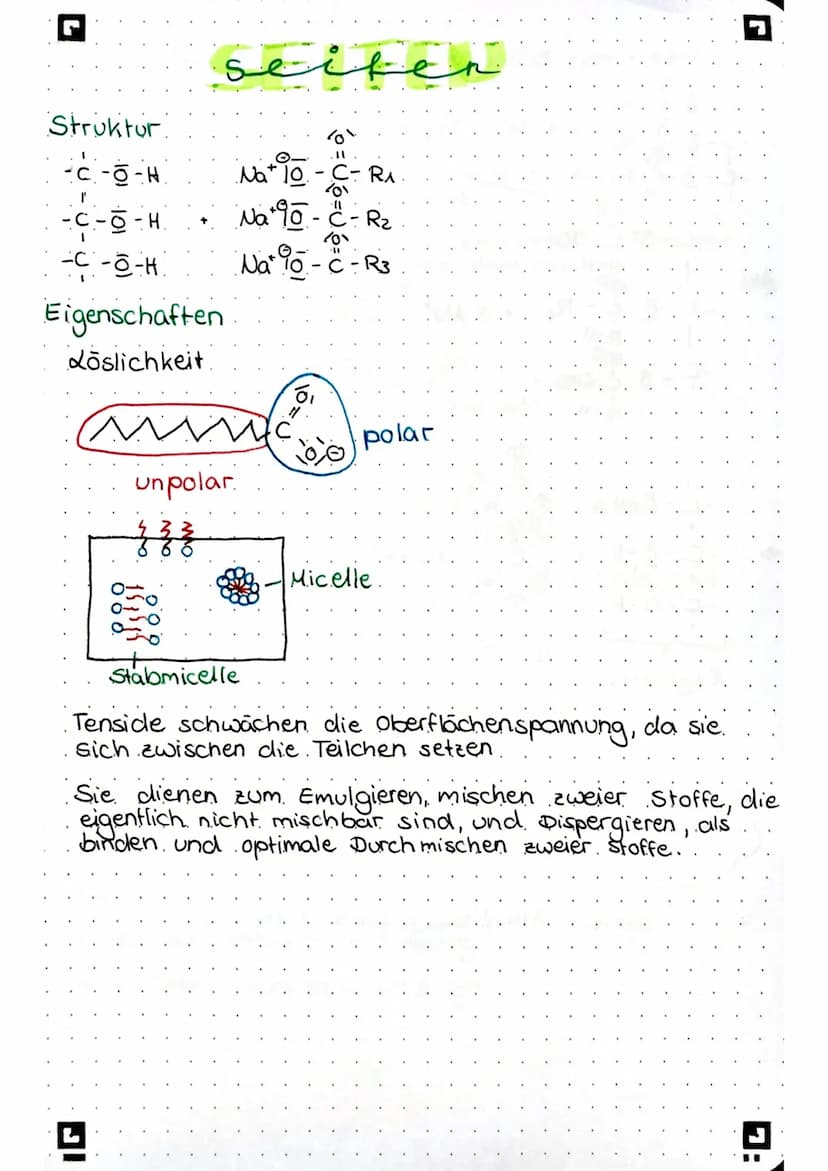 Seifen
Struktur
-C-O-H Na⁺ ⊖O-C-R1
O
-C-O-H + Na⁺ ⊖O-C-R2
O
-C-O-H Na⁺ ⊖O-C-R3
O
Eigenschaften
Löslichkeit
O
C
O⊖
polar
unpolar
Micelle
Stabmicelle
Tenside schwächen die Oberflächenspannung, da sie
sich zwischen die Teilchen setzen
Sie dienen zum Emulgieren, mischen zweier Stoffe, die
eigentlich nicht mischbar sind, und Dispergieren, als
binden und optimale Durchmischen zweier Stoffe.